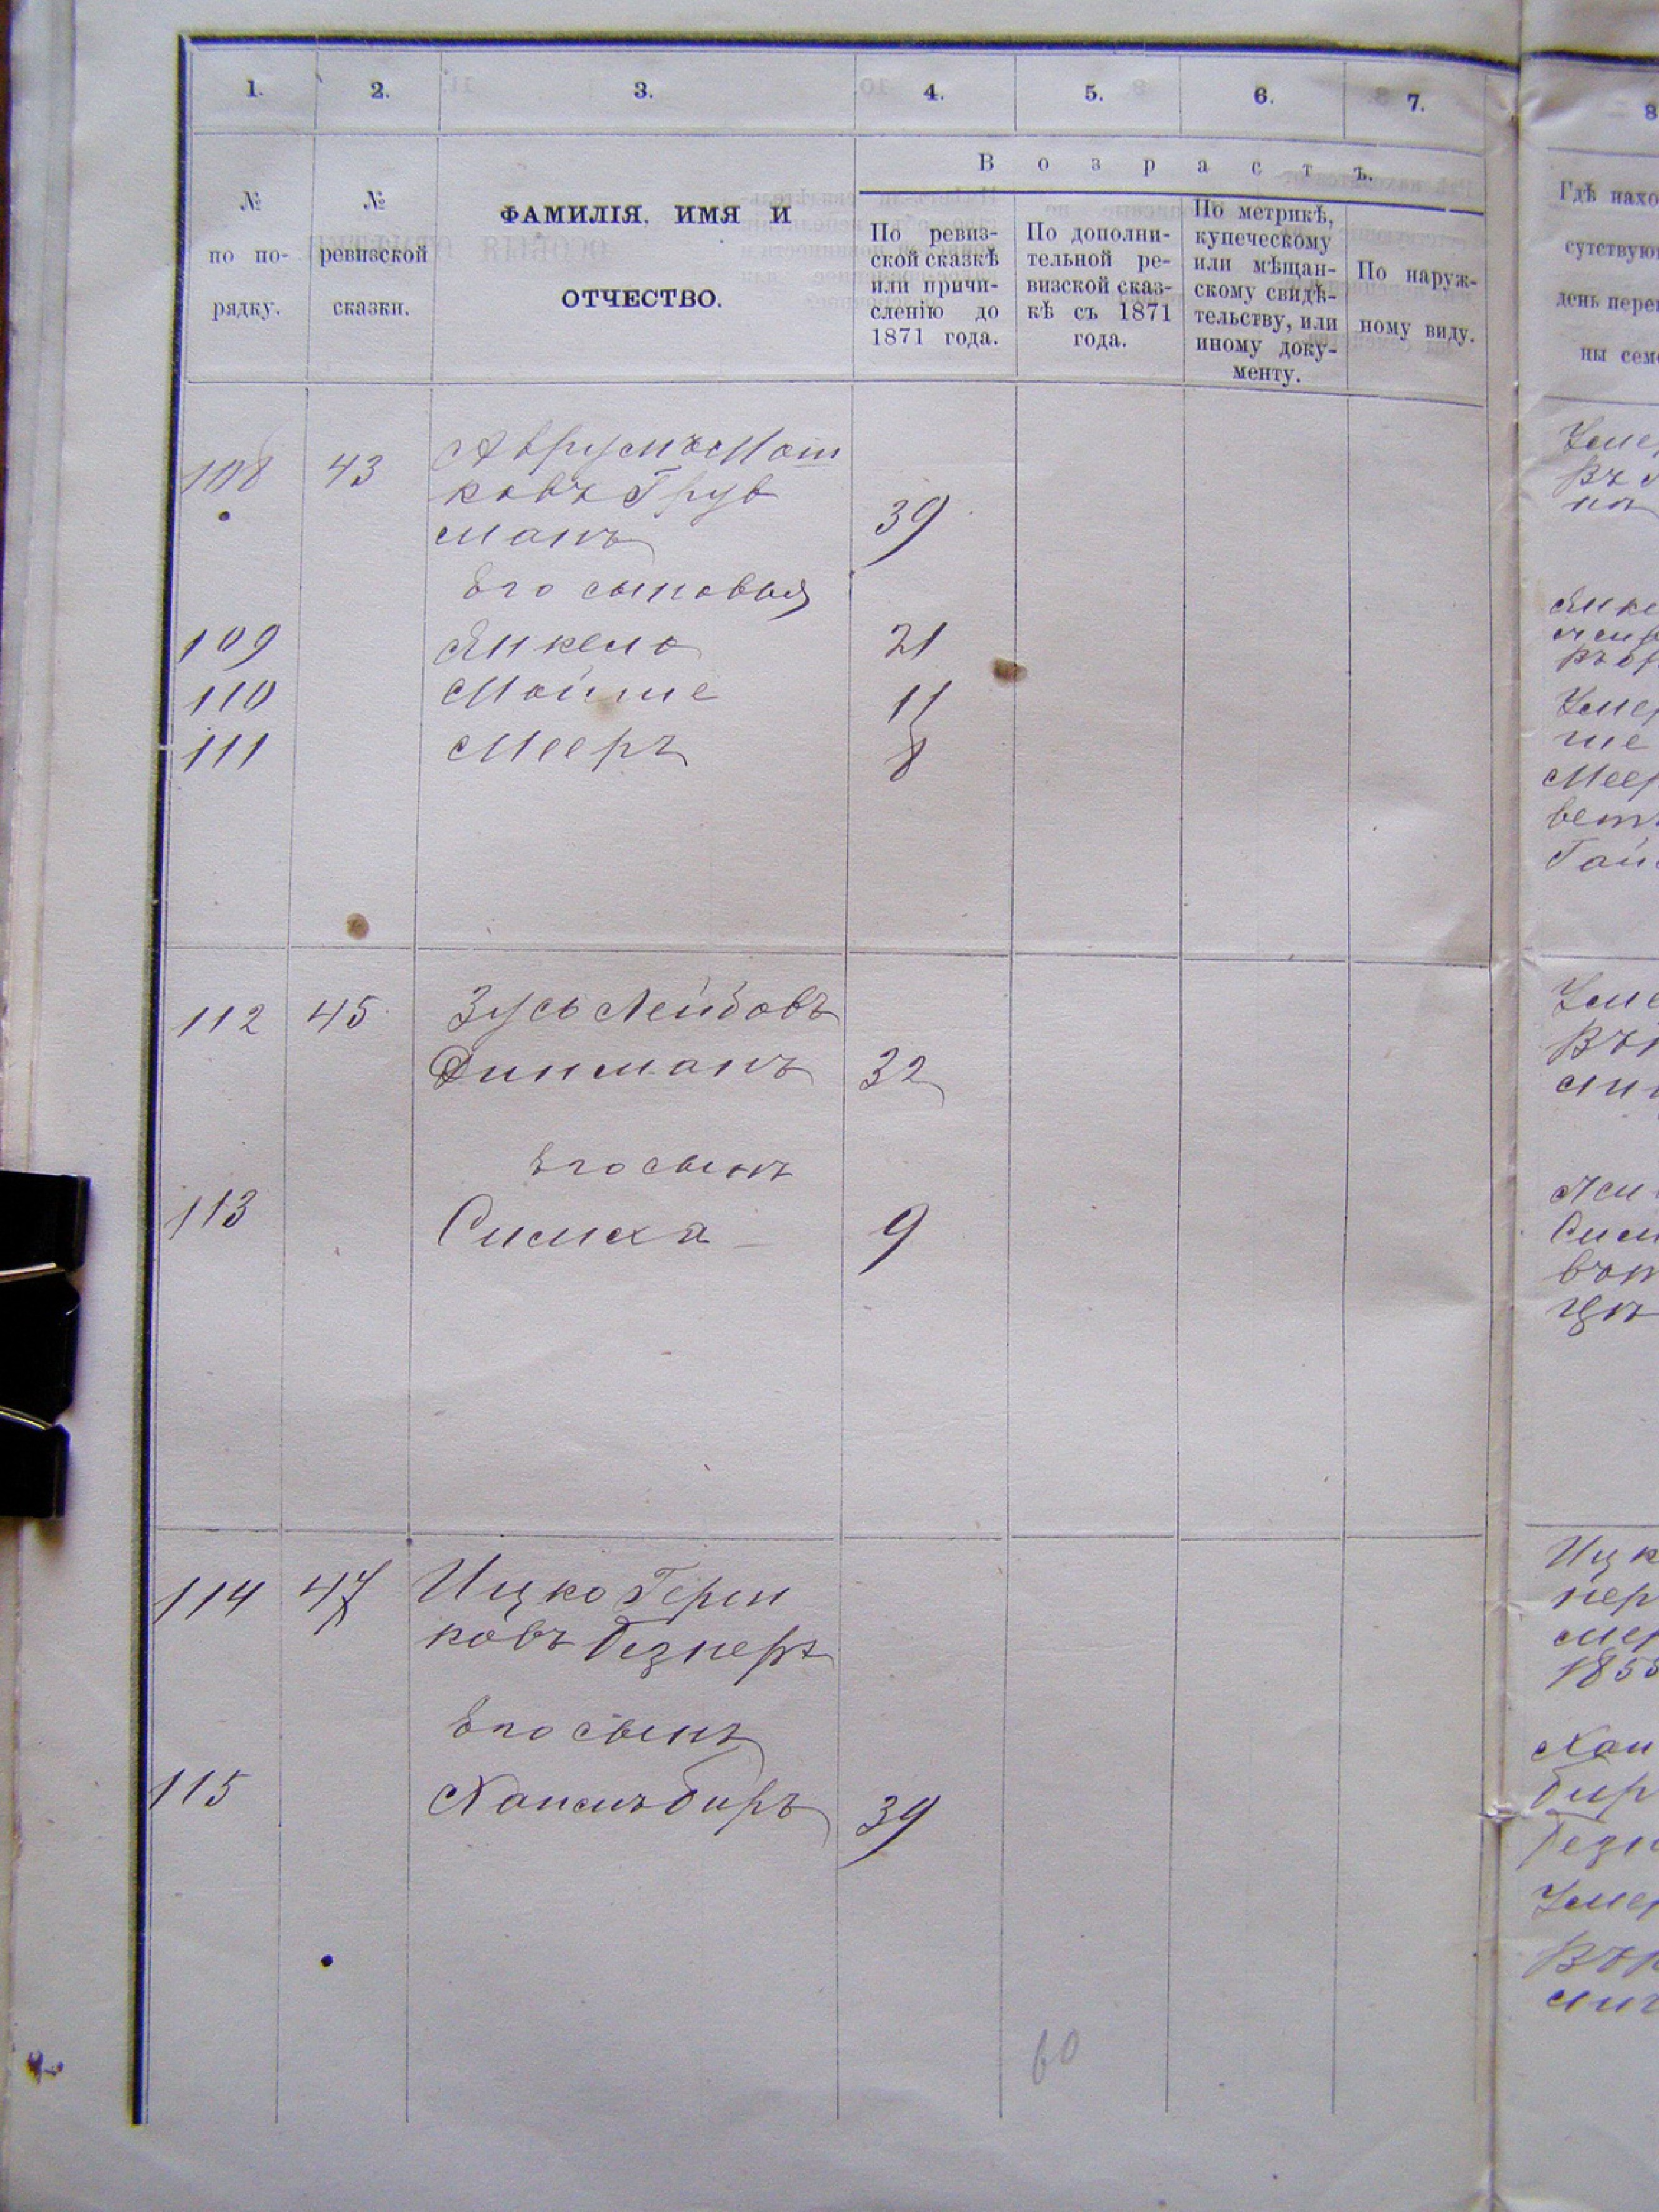 1. 2. 3. 4. 5. 6. 7. 8
№ по по-рядку.
№ ревизской сказки.
ФАМИЛІЯ, ИМЯ И
ОТЧЕСТВО.
Возрастъ.
По ревиз-
ской сказкѣ
или причи-
сленію до
1871 года.
По дополни-
тельной ре-
визской сказ-
кѣ съ 1871
года.
По метрикѣ,
купеческому
или мѣщан-
скому свидѣ-
тельству, или
иному доку-
менту.
По наруж-
ному виду.
Гдѣ нахо
сутствую
день пере
ны сем
108 43 Аврумъ Мош
ковъ Груб
манъ 39
Его сыновья
109 Янкель 21
110 Мойше 11
111 Мееръ 8
112 45 Зусь Лейбовъ
Динманъ 32
Его сынъ
113 Симха 9
114 47 Ицко Герш
ковъ Безнеръ
Его сынъ
115 Хаимъ Биръ 39
60
Умер
Въ
Янке
Умер
ше
Меер
Гай
Уме
Сим
Ицк
нер
мер
185
Хаи
бир
Безн
Умер